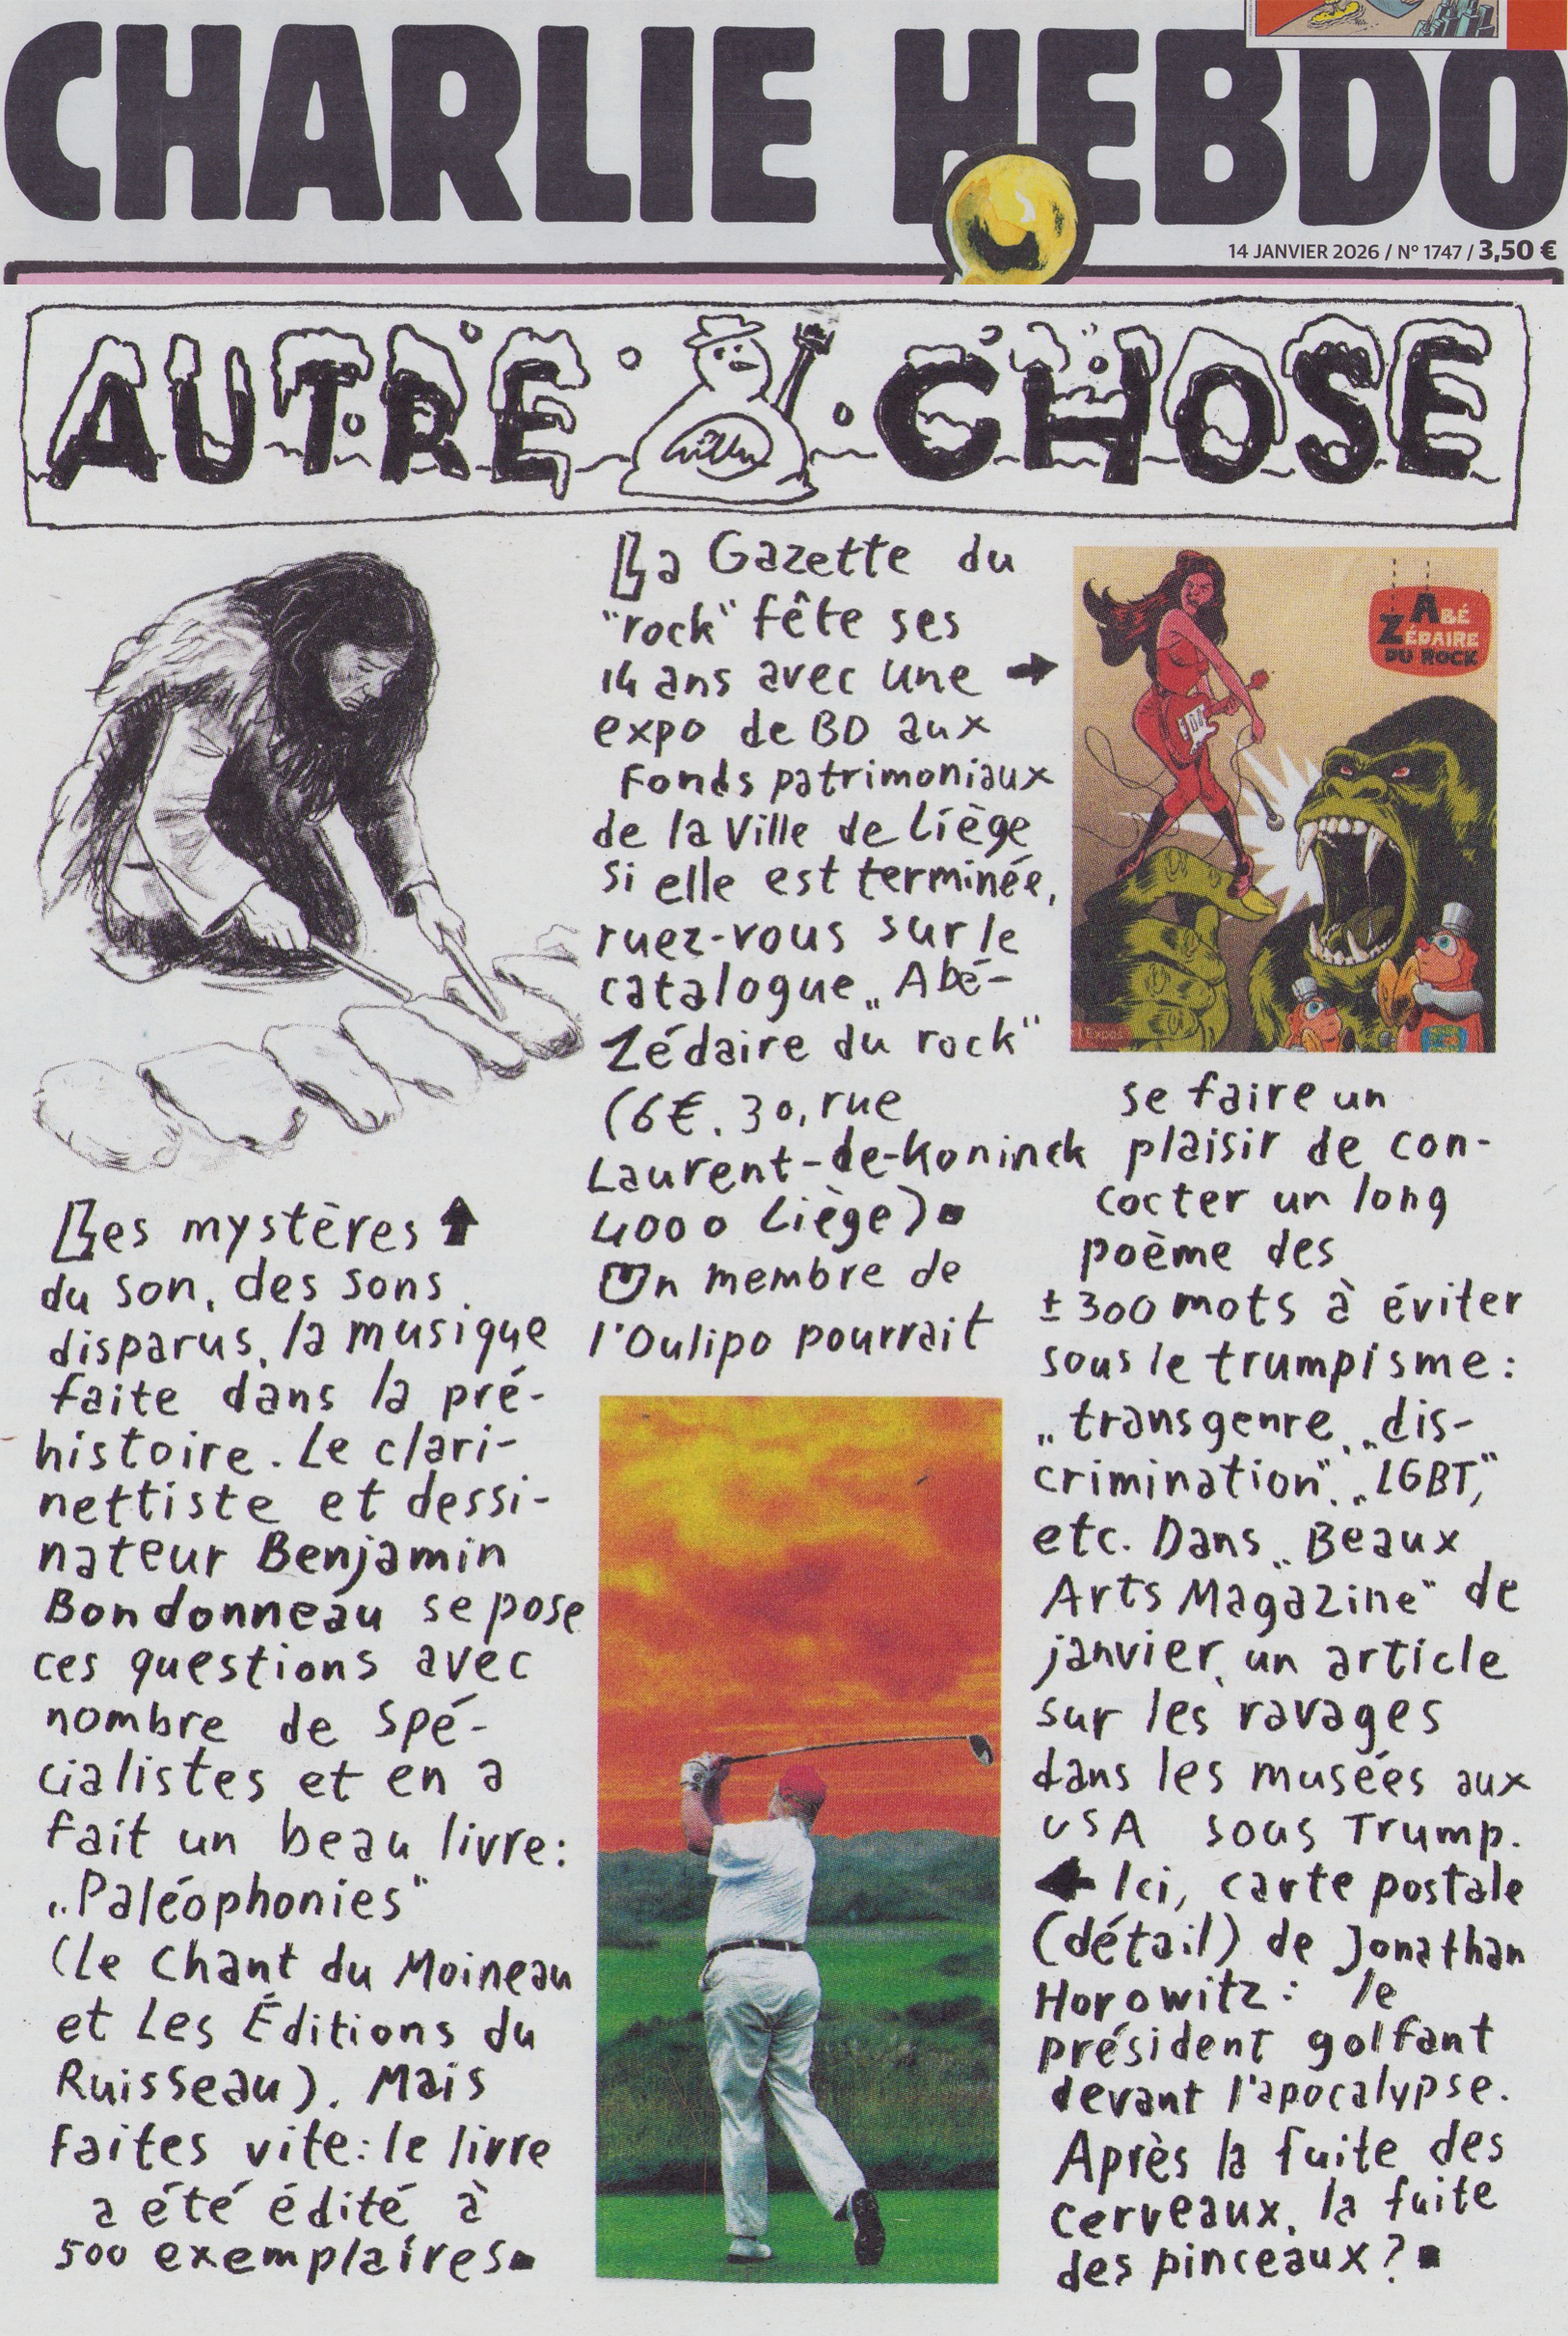 CHARLIE HEBDO
14 JANVIER 2026 / N° 1747 / 3,50 €
AUTRE CHOSE
Willem
Les mystères
du son, des sons
disparus, la musique
faite dans la pré-
histoire. Le clari-
nettiste et dessi-
nateur Benjamin
Bondonneau se pose
ces questions avec
nombre de spé-
cialistes et en a
fait un beau livre:
„Paléophonies"
(Le Chant du Moineau
et Les Éditions du
Ruisseau). Mais
faites vite: le livre
a été édité à
500 exemplaires
La Gazette du
"rock" fête ses
14 ans avec une
expo de BD aux
Fonds patrimoniaux
de la Ville de Liège
Si elle est terminée,
ruez-vous sur le
catalogue „Abé-
Zédaire du rock"
(6€. 30, rue
Laurent-de-Koninck
4000 Liège)
Un membre de
l'Oulipo pourrait
ABÉ
ZÉDAIRE
DU ROCK
l'Expo
se faire un
plaisir de con-
cocter un long
poème des
±300 mots à éviter
sous le trumpisme:
„transgenre, „dis-
crimination", „LGBT,"
etc. Dans „Beaux
Arts Magazine" de
janvier, un article
sur les ravages
dans les musées aux
USA sous Trump.
Ici, carte postale
(détail) de Jonathan
Horowitz: le
président golfant
devant l'apocalypse.
Après la fuite des
cerveaux, la fuite
des pinceaux?